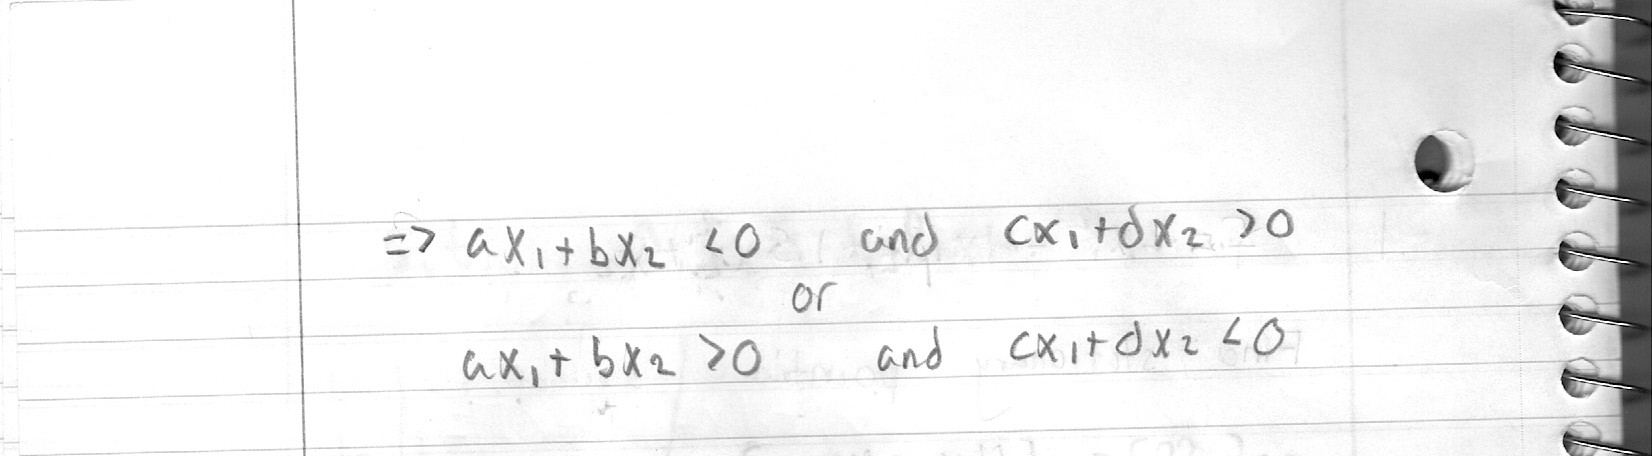 => ax₁+bx₂ <0 and cx₁+dx₂ >0
or
ax₁+bx₂ >0 and cx₁+dx₂ <0